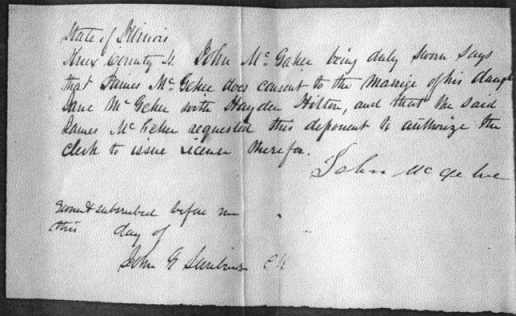 State of Illinois
Knox County ss. John McGehee being duly sworn says
that James McGehee does consent to the marrige of his daugh
Jane McGehee with Hayden Hilton, and that the said
James McGehee requested this deponent to authorize the
clerk to issue License therefor.
John McGehee
Sworn & subscribed before me
this day of
John G